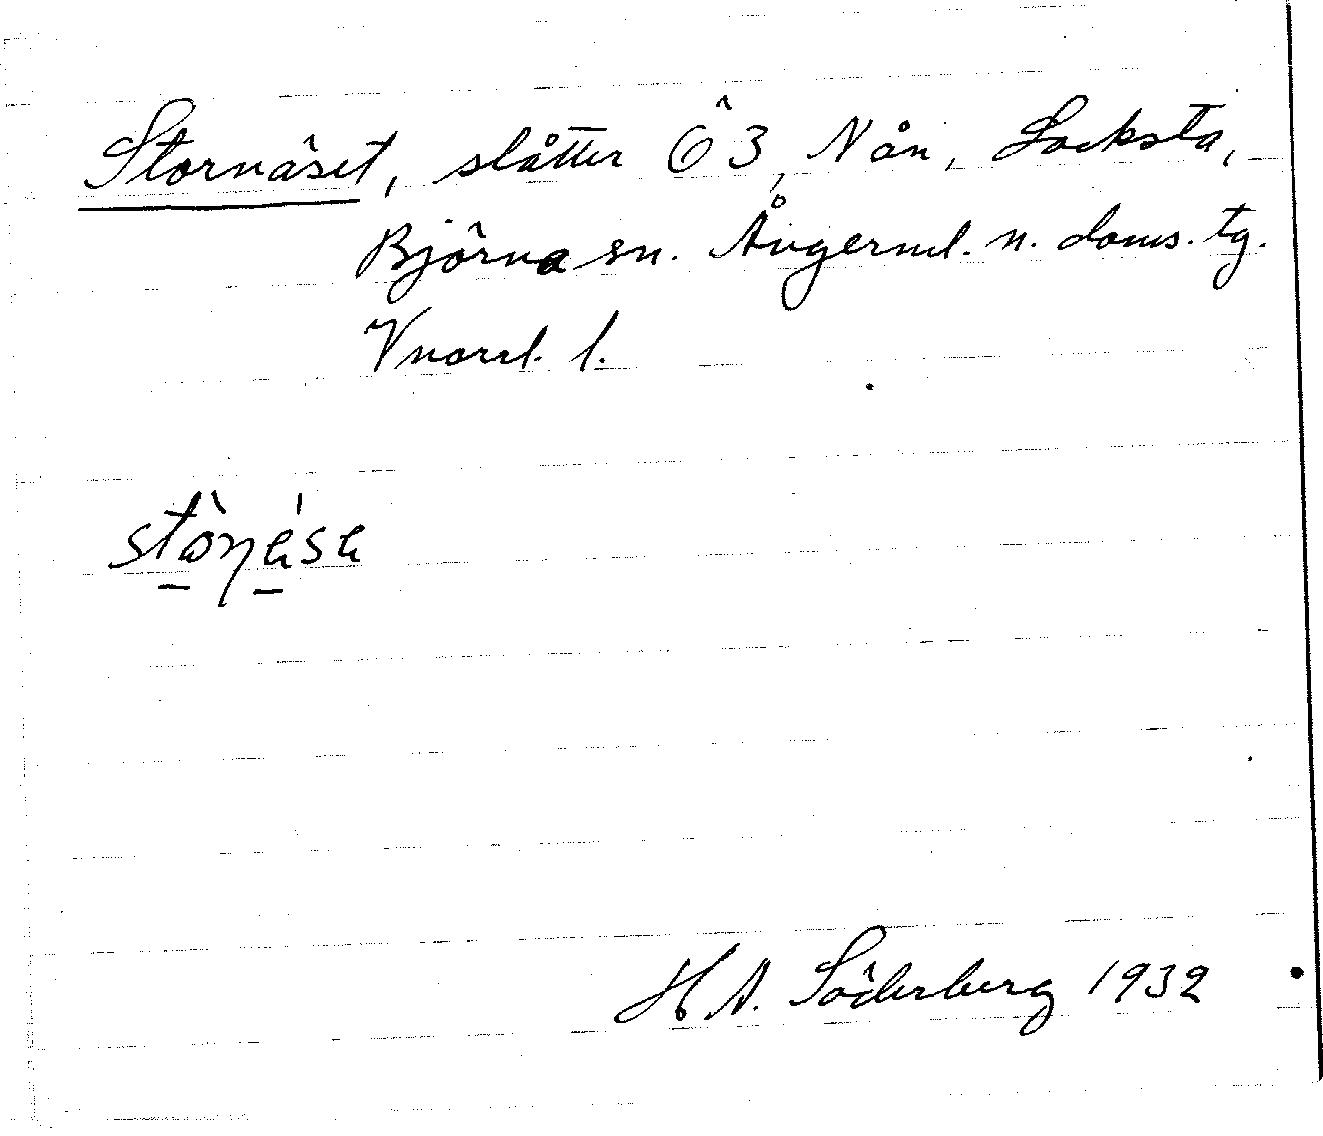 Stornäset, slåtter Ö 3, N ån, Locksta,
Björna sn. Ångerml. n. doms. tg.
Vnorrl. l.
stôn̥äsä
H. A. Söderberg 1932